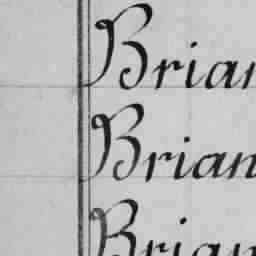 Brian
Brian
Brian